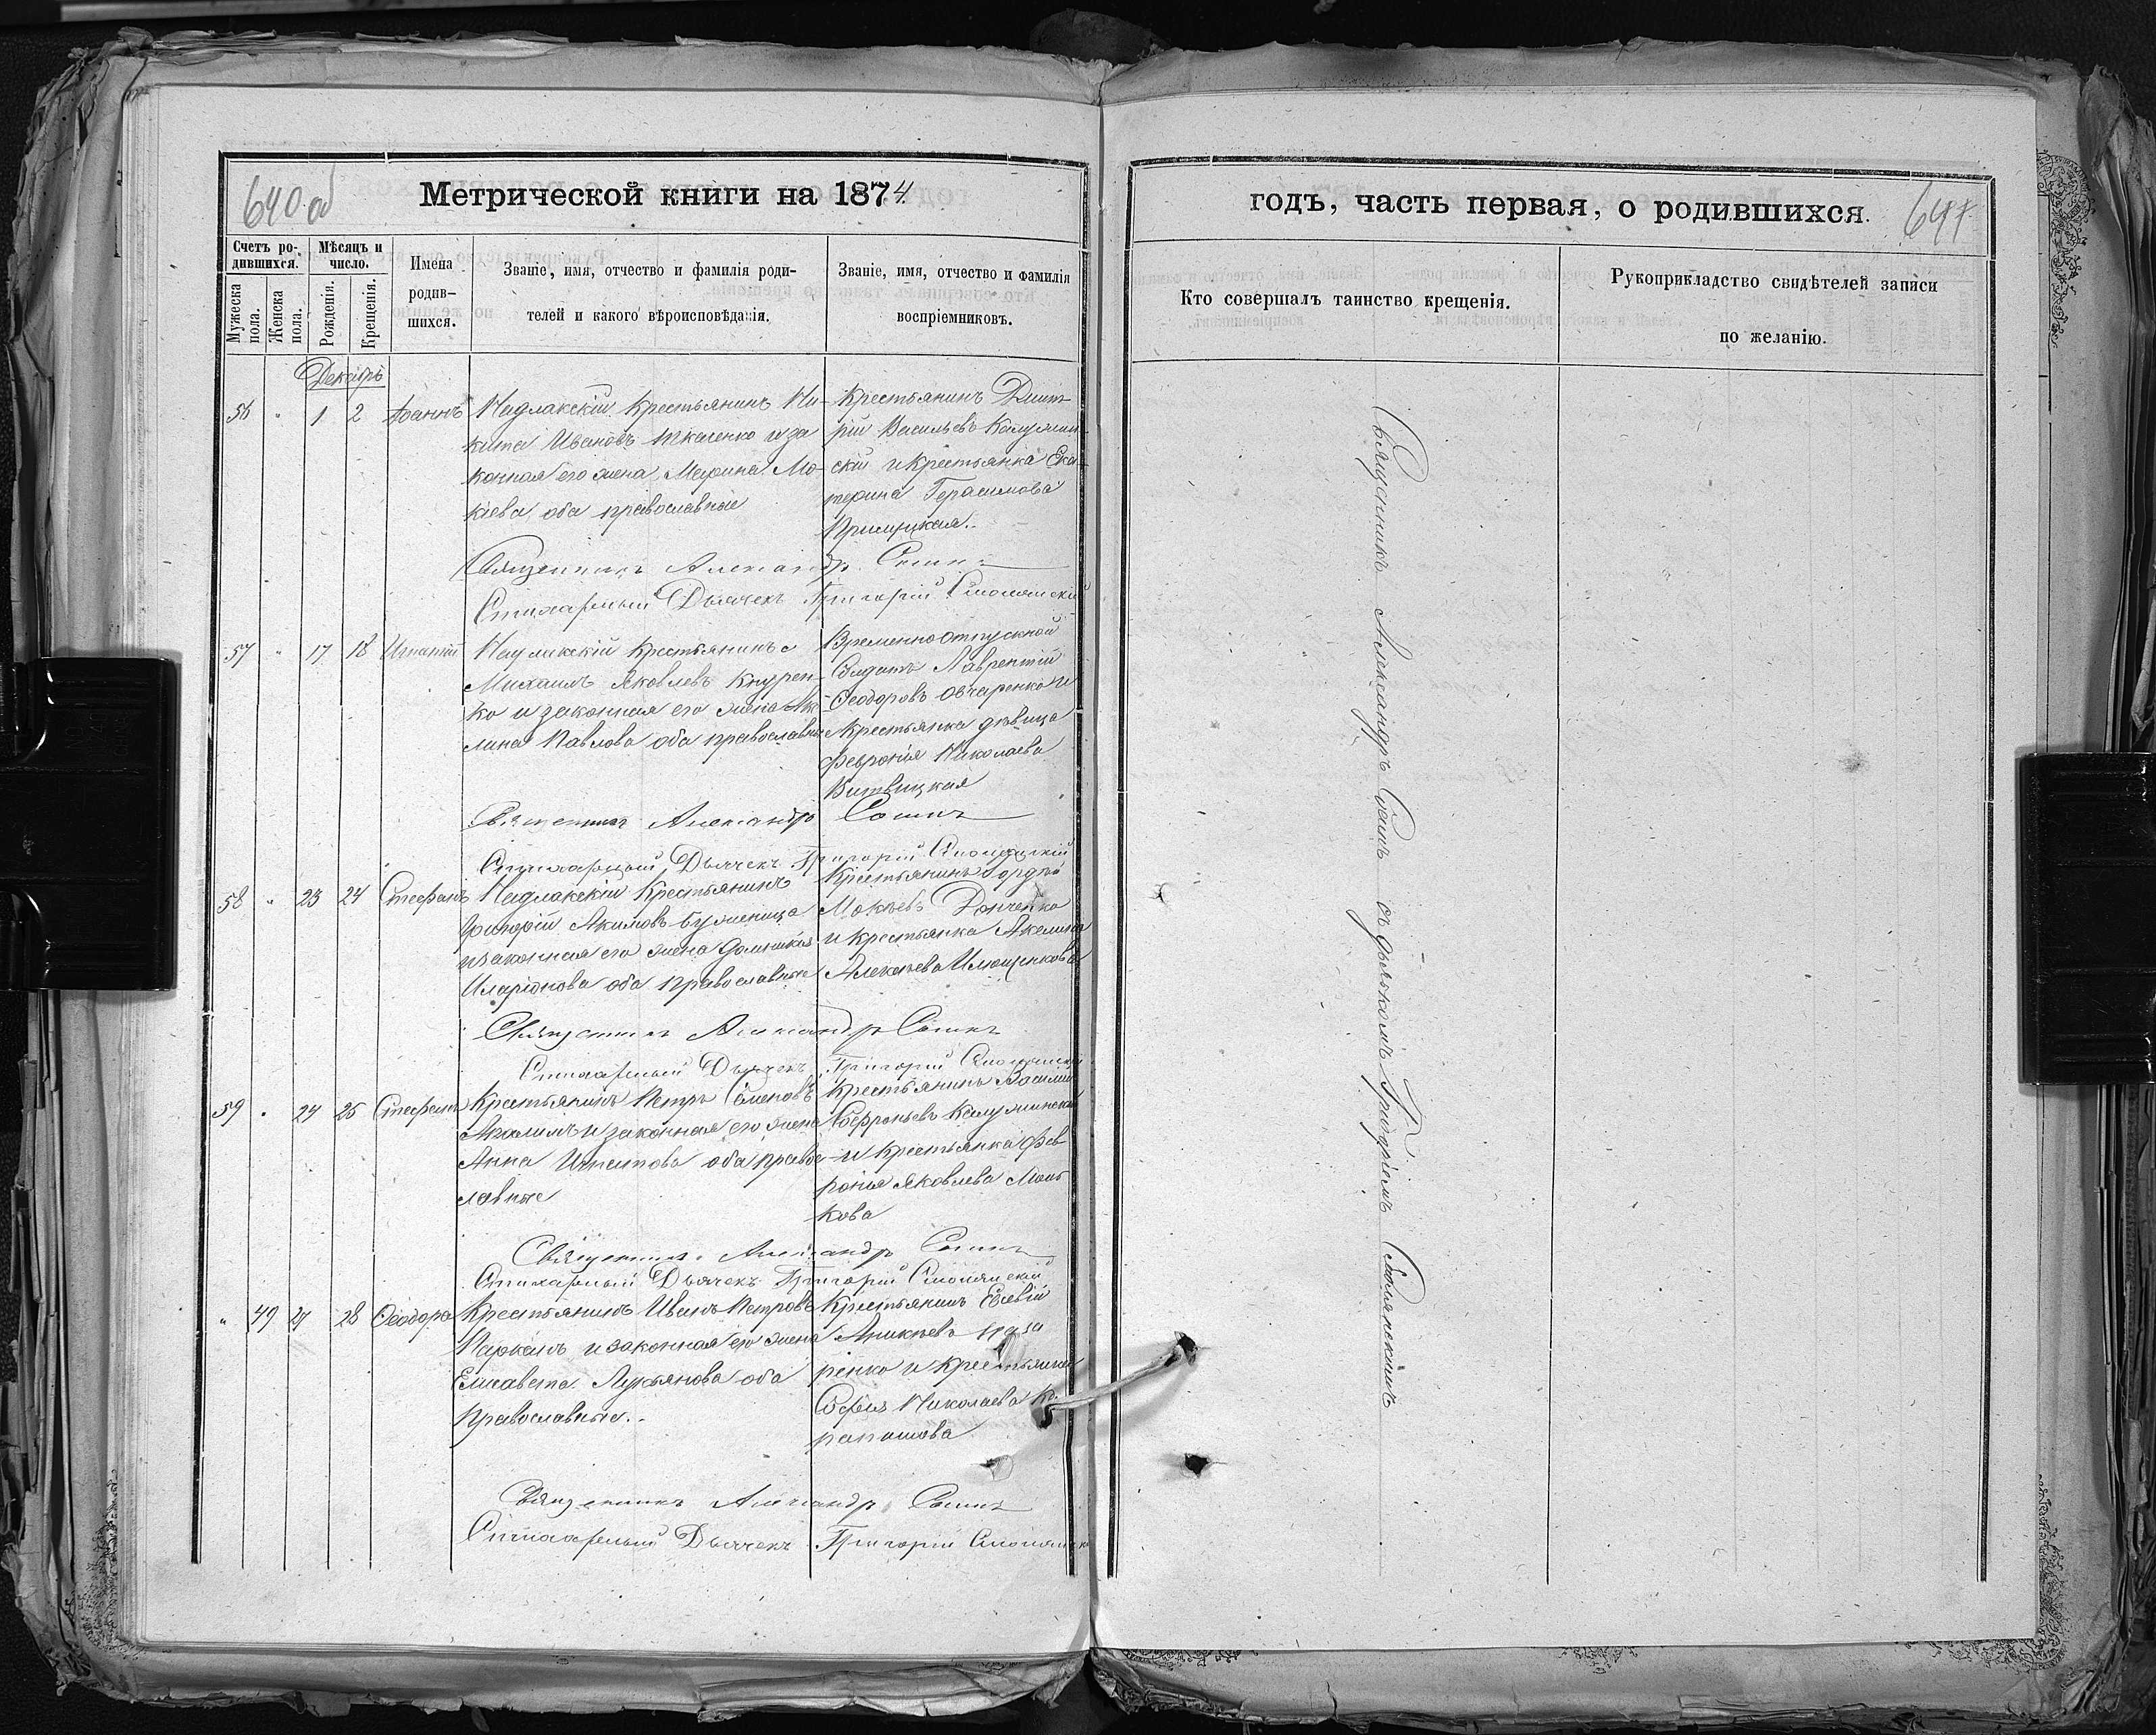 640 об
Метрической книги на 1874
Счетъ ро-
дившихся.
Мѣсяцъ и
число.
Мужеска
пола.
Женска
пола.
Рожденія.
Крещенія.
Имена
родив-
шихся.
Званіе, имя, отчество и фамилія роди-
телей и какого вѣроисповѣданія.
Званіе, имя, отчество и фамилія
воспріемниковъ.
Декабрь
56 " 1 2 Іоаннъ
Надлакскій Крестьянинъ Ни-
кита Ивановъ Ткаченко и за
конная его жена Марина Мо-
кіева оба православные
Крестьянинъ Димит-
рій Васильевъ
скій и Крестьянка Ека-
терина Герасимова
Священникъ Александръ Сошин
Стихарный Дьячекъ Григорій Смолянскій
57 " 17 18 Игнатій
Надлакскій Крестьянинъ
Михаилъ Яковлевъ Кнурен-
ко и законная его жена Аке-
лина Павлова оба православные
Временноотпускной
Солдатъ Лаврентій
Ѳеодоровъ Овчаренко и
Крестьянка дѣвица
Февронія Николаева
Витвицкая
Священникъ Александръ Сошинъ
Стихарный Дьячекъ Григорій Смолянскій
58 " 23 24 Стефанъ
Надлакскій Крестьянинъ
Григорій Акимовъ
и законная его жена Домникія
Иларіонова оба православные
Крестьянинъ Гордѣй
Мокѣевъ Донченко
и Крестьянка Акелина
Алексѣева
Священникъ Александръ Сошинъ
Стихарный Дьячекъ Григорій Смолянскій
59 " 24 25 Стефанъ
Крестьянинъ Петръ Семеновъ
и законная его жена
Анна Игнатова оба правос-
лавные
Крестьянинъ Василій
Софроньевъ
и Крестьянка Фев-
ронія Яковлева
кова
Священникъ Александръ Сошинъ
Стихарный Дьячекъ Григорій Смолянскій
" 49 27 28 Ѳеодора
Крестьянинъ Иванъ Петровъ
и законная его жена
Елисавета Лукьянова оба
православные.
Крестьянинъ Евсевій
Аникѣевъ
ренко и Крестьянка
Софія Николаева
Священникъ Александръ Сошинъ
Стихарный Дьячекъ Григорій
годъ, часть первая, о родившихся.
641
Кто совершалъ таинство крещенія.
Рукоприкладство свидѣтелей записи
по желанію.
Священникъ Александръ Сошинъ съ дьячкомъ Григоріемъ Смолянскимъ